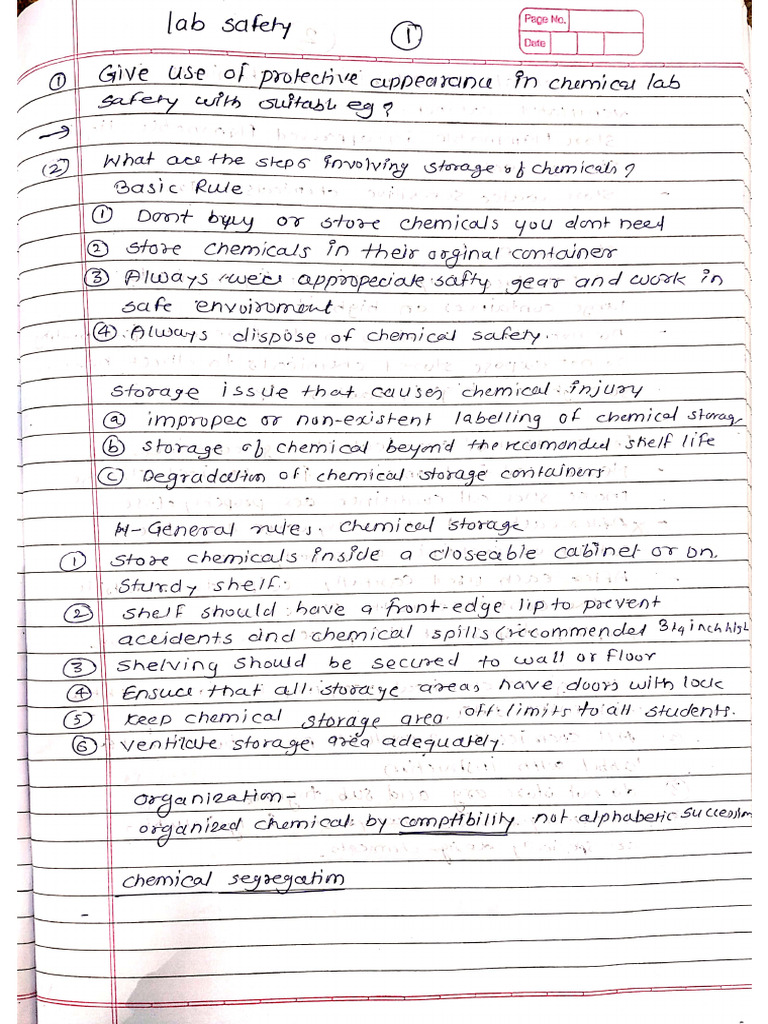 lab safety
①
Page No.
Date
① Give use of protective appearance in chemical lab
safety with suitable eg?
→
(2) What are the steps involving storage of chemicals?
Basic Rule
① Dont buy or store chemicals you dont need
② Store chemicals in their orginal container
③ Always wear appropeciate safty gear and work in
safe envoironment
④ Always dispose of chemical safety.
Storage issue that causes chemical injury
ⓐ improper or non-existent labelling of chemical storag
ⓑ Storage of chemical beyond the recomonded shelf life
ⓒ Degradation of chemical storage containers
General rules. Chemical storage
① Store chemicals inside a closeable cabinet or on.
Sturdy shelf.
② Shelf should have a front-edge lip to prevent
accidents and chemical spills (recommended 3/4 inch high
③ Shelving should be secured to wall or floor
④ Ensure that all storage areas have doors with lock
⑤ Keep chemical storage area off limits to all students.
⑥ Ventilate storage area adequately
Organization-
organized chemical by comptibility not alphabetic succession
chemical segregation
-